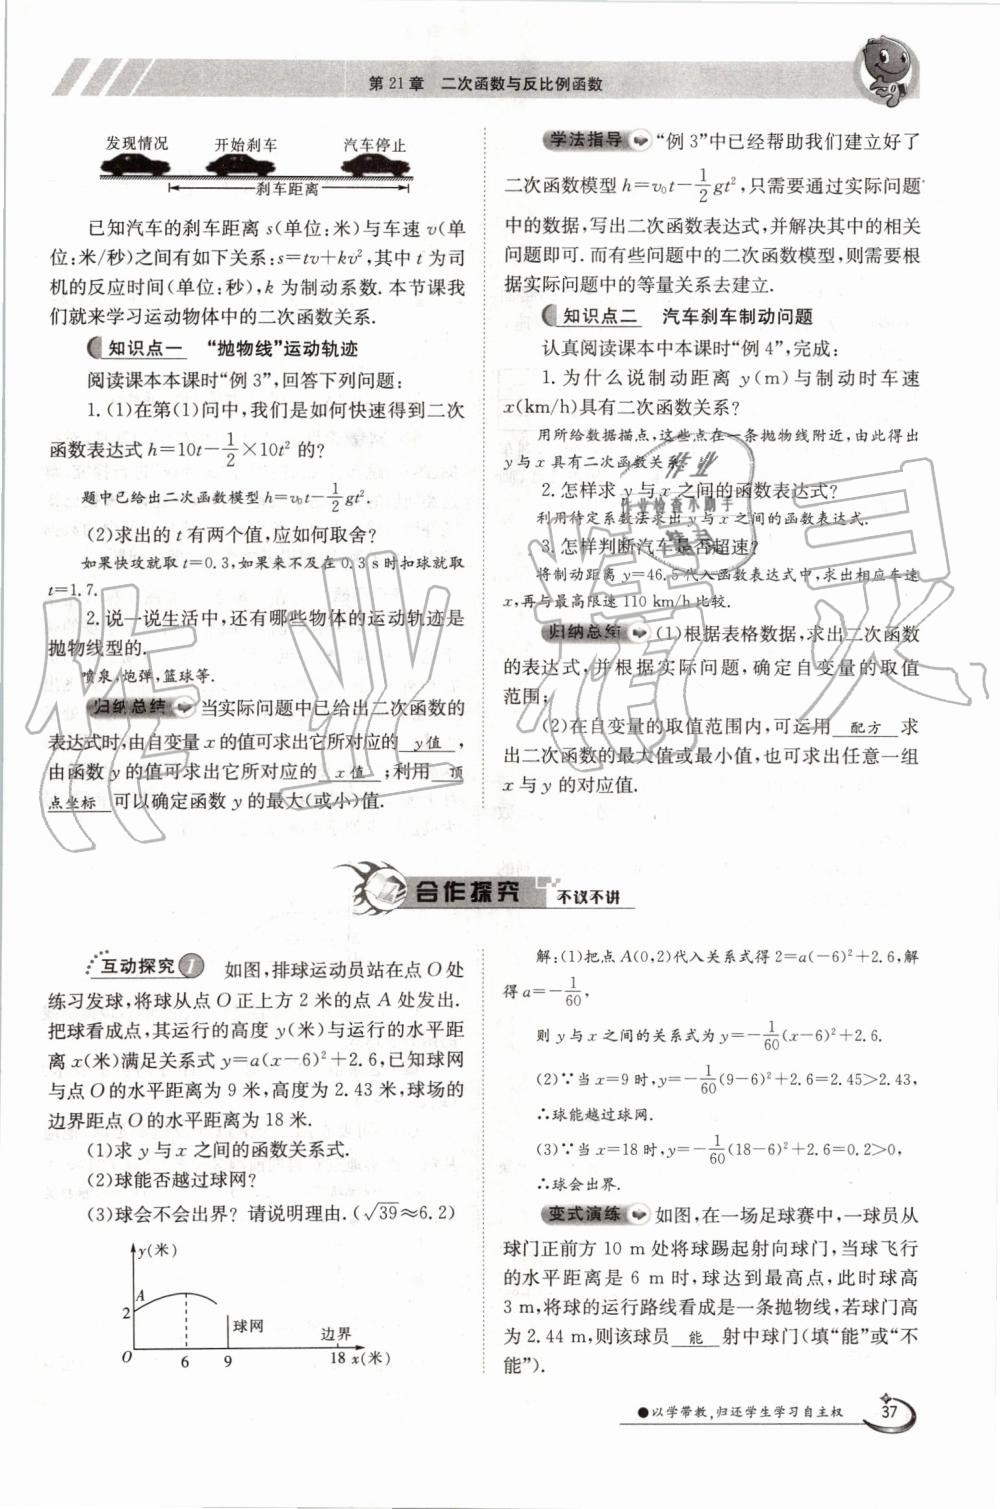 第21章 二次函数与反比例函数
发现情况 开始刹车 汽车停止
刹车距离
已知汽车的刹车距离 s(单位:米)与车速 v(单
位:米/秒)之间有如下关系:s=tv+kv²,其中 t 为司
机的反应时间(单位:秒),k 为制动系数.本节课我
们就来学习运动物体中的二次函数关系.
知识点一 “抛物线”运动轨迹
阅读课本本课时“例 3”,回答下列问题:
1.(1)在第(1)问中,我们是如何快速得到二次
函数表达式 h=10t-1/2×10t² 的?
题中已给出二次函数模型 h=v₀t-1/2gt².
(2)求出的 t 有两个值,应如何取舍?
如果快攻就取 t=0.3,如果来不及在 0.3 s时扣球就取
t=1.7.
2.说一说生活中,还有哪些物体的运动轨迹是
抛物线型的.
喷泉,炮弹,篮球等.
归纳总结 当实际问题中已给出二次函数的
表达式时,由自变量 x 的值可求出它所对应的 y 值 ,
由函数 y 的值可求出它所对应的 x 值 ;利用 顶
点坐标 可以确定函数 y 的最大(或小)值.
学法指导 “例 3”中已经帮助我们建立好了
二次函数模型 h=v₀t-1/2gt²,只需要通过实际问题
中的数据,写出二次函数表达式,并解决其中的相关
问题即可.而有些问题中的二次函数模型,则需要根
据实际问题中的等量关系去建立.
知识点二 汽车刹车制动问题
认真阅读课本中本课时“例 4”,完成:
1.为什么说制动距离 y(m)与制动时车速
x(km/h)具有二次函数关系?
用所给数据描点,这些点在一条抛物线附近,由此得出
y 与 x 具有二次函数关系.
2.怎样求 y 与 x 之间的函数表达式?
利用待定系数法求出 y 与 x 之间的函数表达式.
3.怎样判断汽车是否超速?
将制动距离 y=46.5代入函数表达式中,求出相应车速
x,再与最高限速 110 km/h比较.
归纳总结 (1)根据表格数据,求出二次函数
的表达式,并根据实际问题,确定自变量的取值
范围;
(2)在自变量的取值范围内,可运用 配方 求
出二次函数的最大值或最小值,也可求出任意一组
x 与 y 的对应值.
合作探究 不议不讲
互动探究 1 如图,排球运动员站在点 O 处
练习发球,将球从点 O 正上方 2 米的点 A 处发出.
把球看成点,其运行的高度 y(米)与运行的水平距
离 x(米)满足关系式 y=a(x-6)²+2.6,已知球网
与点 O 的水平距离为 9 米,高度为 2.43 米,球场的
边界距点 O 的水平距离为 18 米.
(1)求 y 与 x 之间的函数关系式.
(2)球能否越过球网?
(3)球会不会出界?请说明理由.(√39≈6.2)
y(米)
A
2
球网 边界
O 6 9 18 x(米)
解:(1)把点 A(0,2)代入关系式得 2=a(-6)²+2.6,解
得 a=-1/60,
则 y 与 x 之间的关系式为 y=-1/60(x-6)²+2.6.
(2)∵当 x=9 时,y=-1/60(9-6)²+2.6=2.45>2.43,
∴球能越过球网.
(3)∵当 x=18 时,y=-1/60(18-6)²+2.6=0.2>0,
∴球会出界.
变式演练 如图,在一场足球赛中,一球员从
球门正前方 10 m 处将球踢起射向球门,当球飞行
的水平距离是 6 m 时,球达到最高点,此时球高
3 m,将球的运行路线看成是一条抛物线,若球门高
为 2.44 m,则该球员 能 射中球门(填“能”或“不
能”).
●以学带教,归还学生学习自主权
37
作业
作业检查小助手
作业精灵